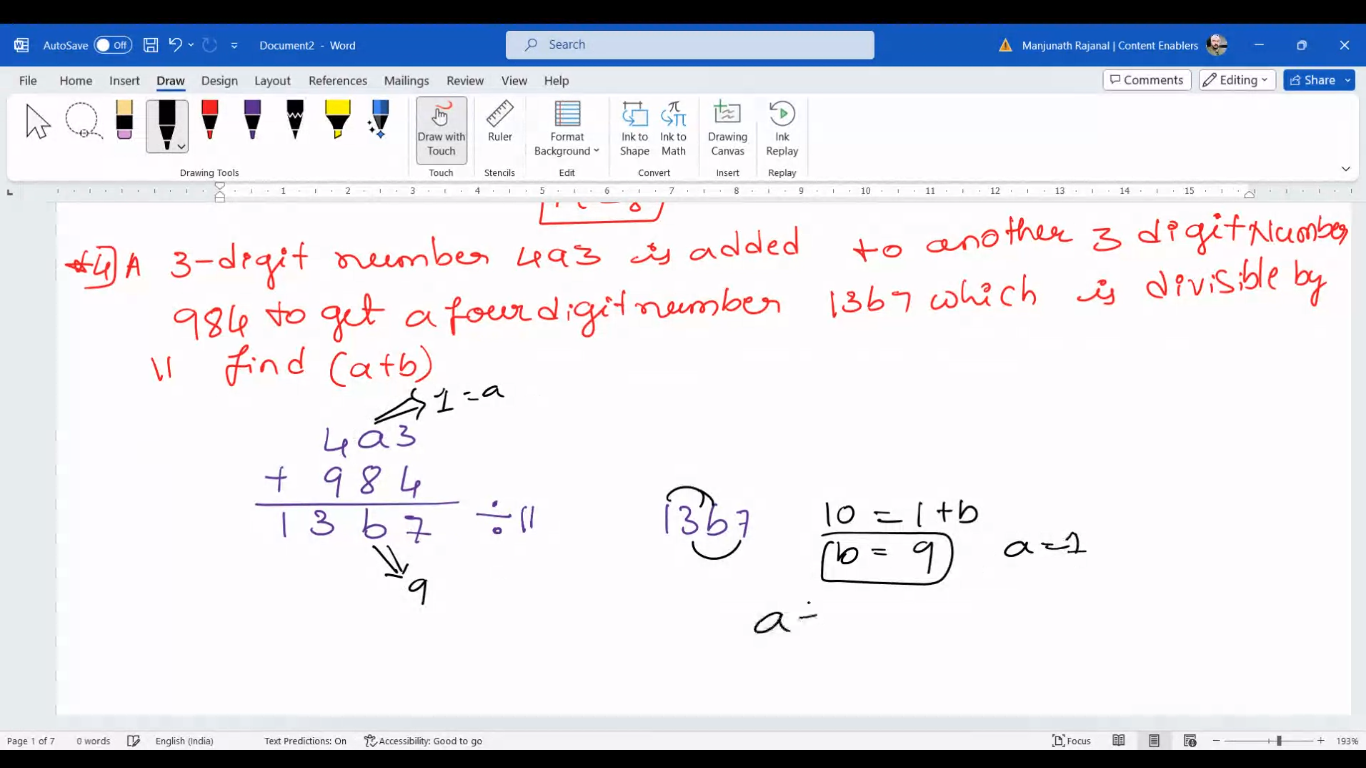 AutoSave Off Document2 - Word Search Manjunath Rajanal | Content Enablers
File Home Insert Draw Design Layout References Mailings Review View Help Comments Editing Share
Draw with Touch Ruler Format Background Ink to Shape Ink to Math Drawing Canvas Ink Replay
Drawing Tools Touch Stencils Edit Convert Insert Replay
1 2 3 4 5 6 7 8 9 10 11 12 13 14 15
4] A 3-digit number 4a3 is added to another 3 digit Number
984 to get a four digit number 13b7 which is divisible by
11 find (a+b)
1 = a
4a3
+ 984
13b7 ÷ 11
9
13b7
10 = 1+b
b = 9 a=1
a
Page 1 of 7 0 words English (India) Text Predictions: On Accessibility: Good to go Focus 193%